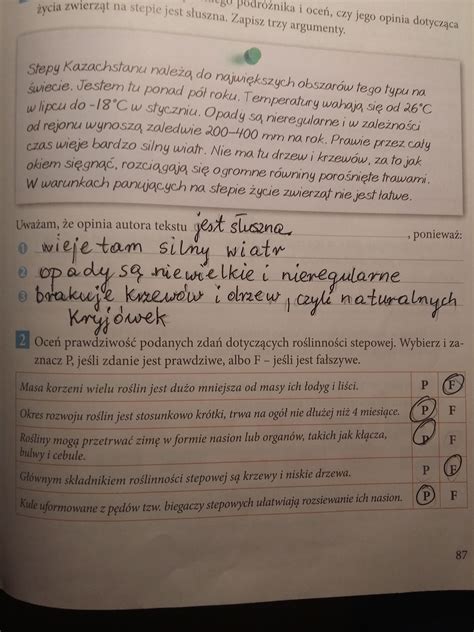 podróżnika i oceń, czy jego opinia dotycząca
życia zwierząt na stepie jest słuszna. Zapisz trzy argumenty.
Stepy Kazachstanu należą do największych obszarów tego typu na
świecie. Jestem tu ponad pół roku. Temperatury wahają się od 26°C
w lipcu do -18°C w styczniu. Opady są nieregularne i w zależności
od rejonu wynoszą zaledwie 200-400 mm na rok. Prawie przez cały
czas wieje bardzo silny wiatr. Nie ma tu drzew i krzewów, za to jak
okiem sięgnąć, rozciągają się ogromne równiny porośnięte trawami.
W warunkach panujących na stepie życie zwierząt nie jest łatwe.
Uważam, że opinia autora tekstu jest słuszna, ponieważ:
1 wieje tam silny wiatr
2 opady są niewielkie i nieregularne
3 brakuje krzewów i drzew, czyli naturalnych
kryjówek
2 Oceń prawdziwość podanych zdań dotyczących roślinności stepowej. Wybierz i za-
znacz P, jeśli zdanie jest prawdziwe, albo F – jeśli jest fałszywe.
Masa korzeni wielu roślin jest dużo mniejsza od masy ich łodyg i liści. P F
Okres rozwoju roślin jest stosunkowo krótki, trwa na ogół nie dłużej niż 4 miesiące. P F
Rośliny mogą przetrwać zimę w formie nasion lub organów, takich jak kłącza, P F
bulwy i cebule.
Głównym składnikiem roślinności stepowej są krzewy i niskie drzewa. P F
Kule uformowane z pędów tzw. biegaczy stepowych ułatwiają rozsiewanie ich nasion. P F
87